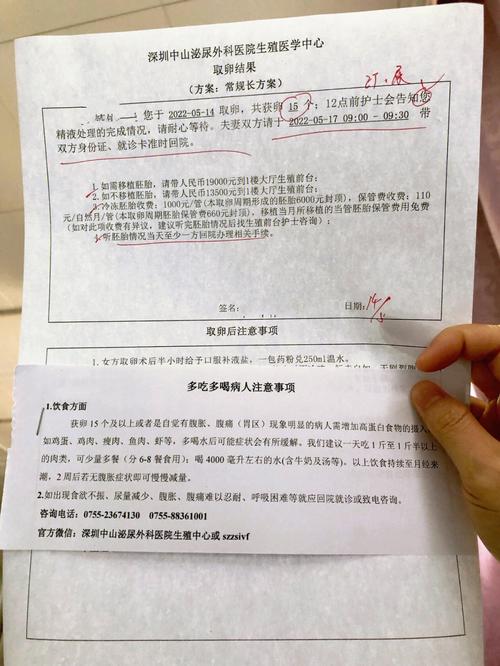 深圳中山泌尿外科医院生殖医学中心
取卵结果
（方案：常规长方案）
您于 2022-05-14 取卵，共获卵 15 个；12点前护士会告知您
精液处理的完成情况，请耐心等待。夫妻双方请于 2022-05-17 09:00 - 09:30 带
双方身份证、就诊卡准时回院。
1.如需移植胚胎，请带人民币19000元到1楼大厅生殖前台；
2.如不移植胚胎，请带人民币13500元到1楼大厅生殖前台；
3.冷冻胚胎收费：1000元/管(本取卵周期形成的胚胎6000元封顶)，保管费收费：110
元/自然月/管(本取卵周期胚胎保管费660元封顶)，移植当月所移植的当管胚胎保管费用免费
(如对此项收费有异议，建议听完胚胎情况后找生殖前台护士咨询)；
听胚胎情况当天至少一方回院办理相关手续。
签名：
日期：
取卵后注意事项
1.女方取卵术后半小时给予口服补液盐，一包药粉兑250ml温水。
多吃多喝病人注意事项
1.饮食方面
获卵 15 个及以上或者是自觉有腹胀、腹痛（胃区）现象明显的病人需增加高蛋白食物的摄入
如鸡蛋、鸡肉、瘦肉、鱼肉、虾等，多喝水后可能症状会有所缓解。我们建议一天吃 1 斤至 1 斤半以上
的肉类，可少量多餐（分 6-8 餐食用）；喝 4000 毫升左右的水(含牛奶及汤等)。以上饮食持续至月经来
潮，2 周后若无腹胀症状即可慢慢减量。
2.如出现食欲不振、尿量减少、腹胀、腹痛难以忍耐、呼吸困难等就应回院就诊或致电咨询。
咨询电话：0755-23674130 0755-88361001
官方微信：深圳中山泌尿外科医院生殖中心或 szzsivf